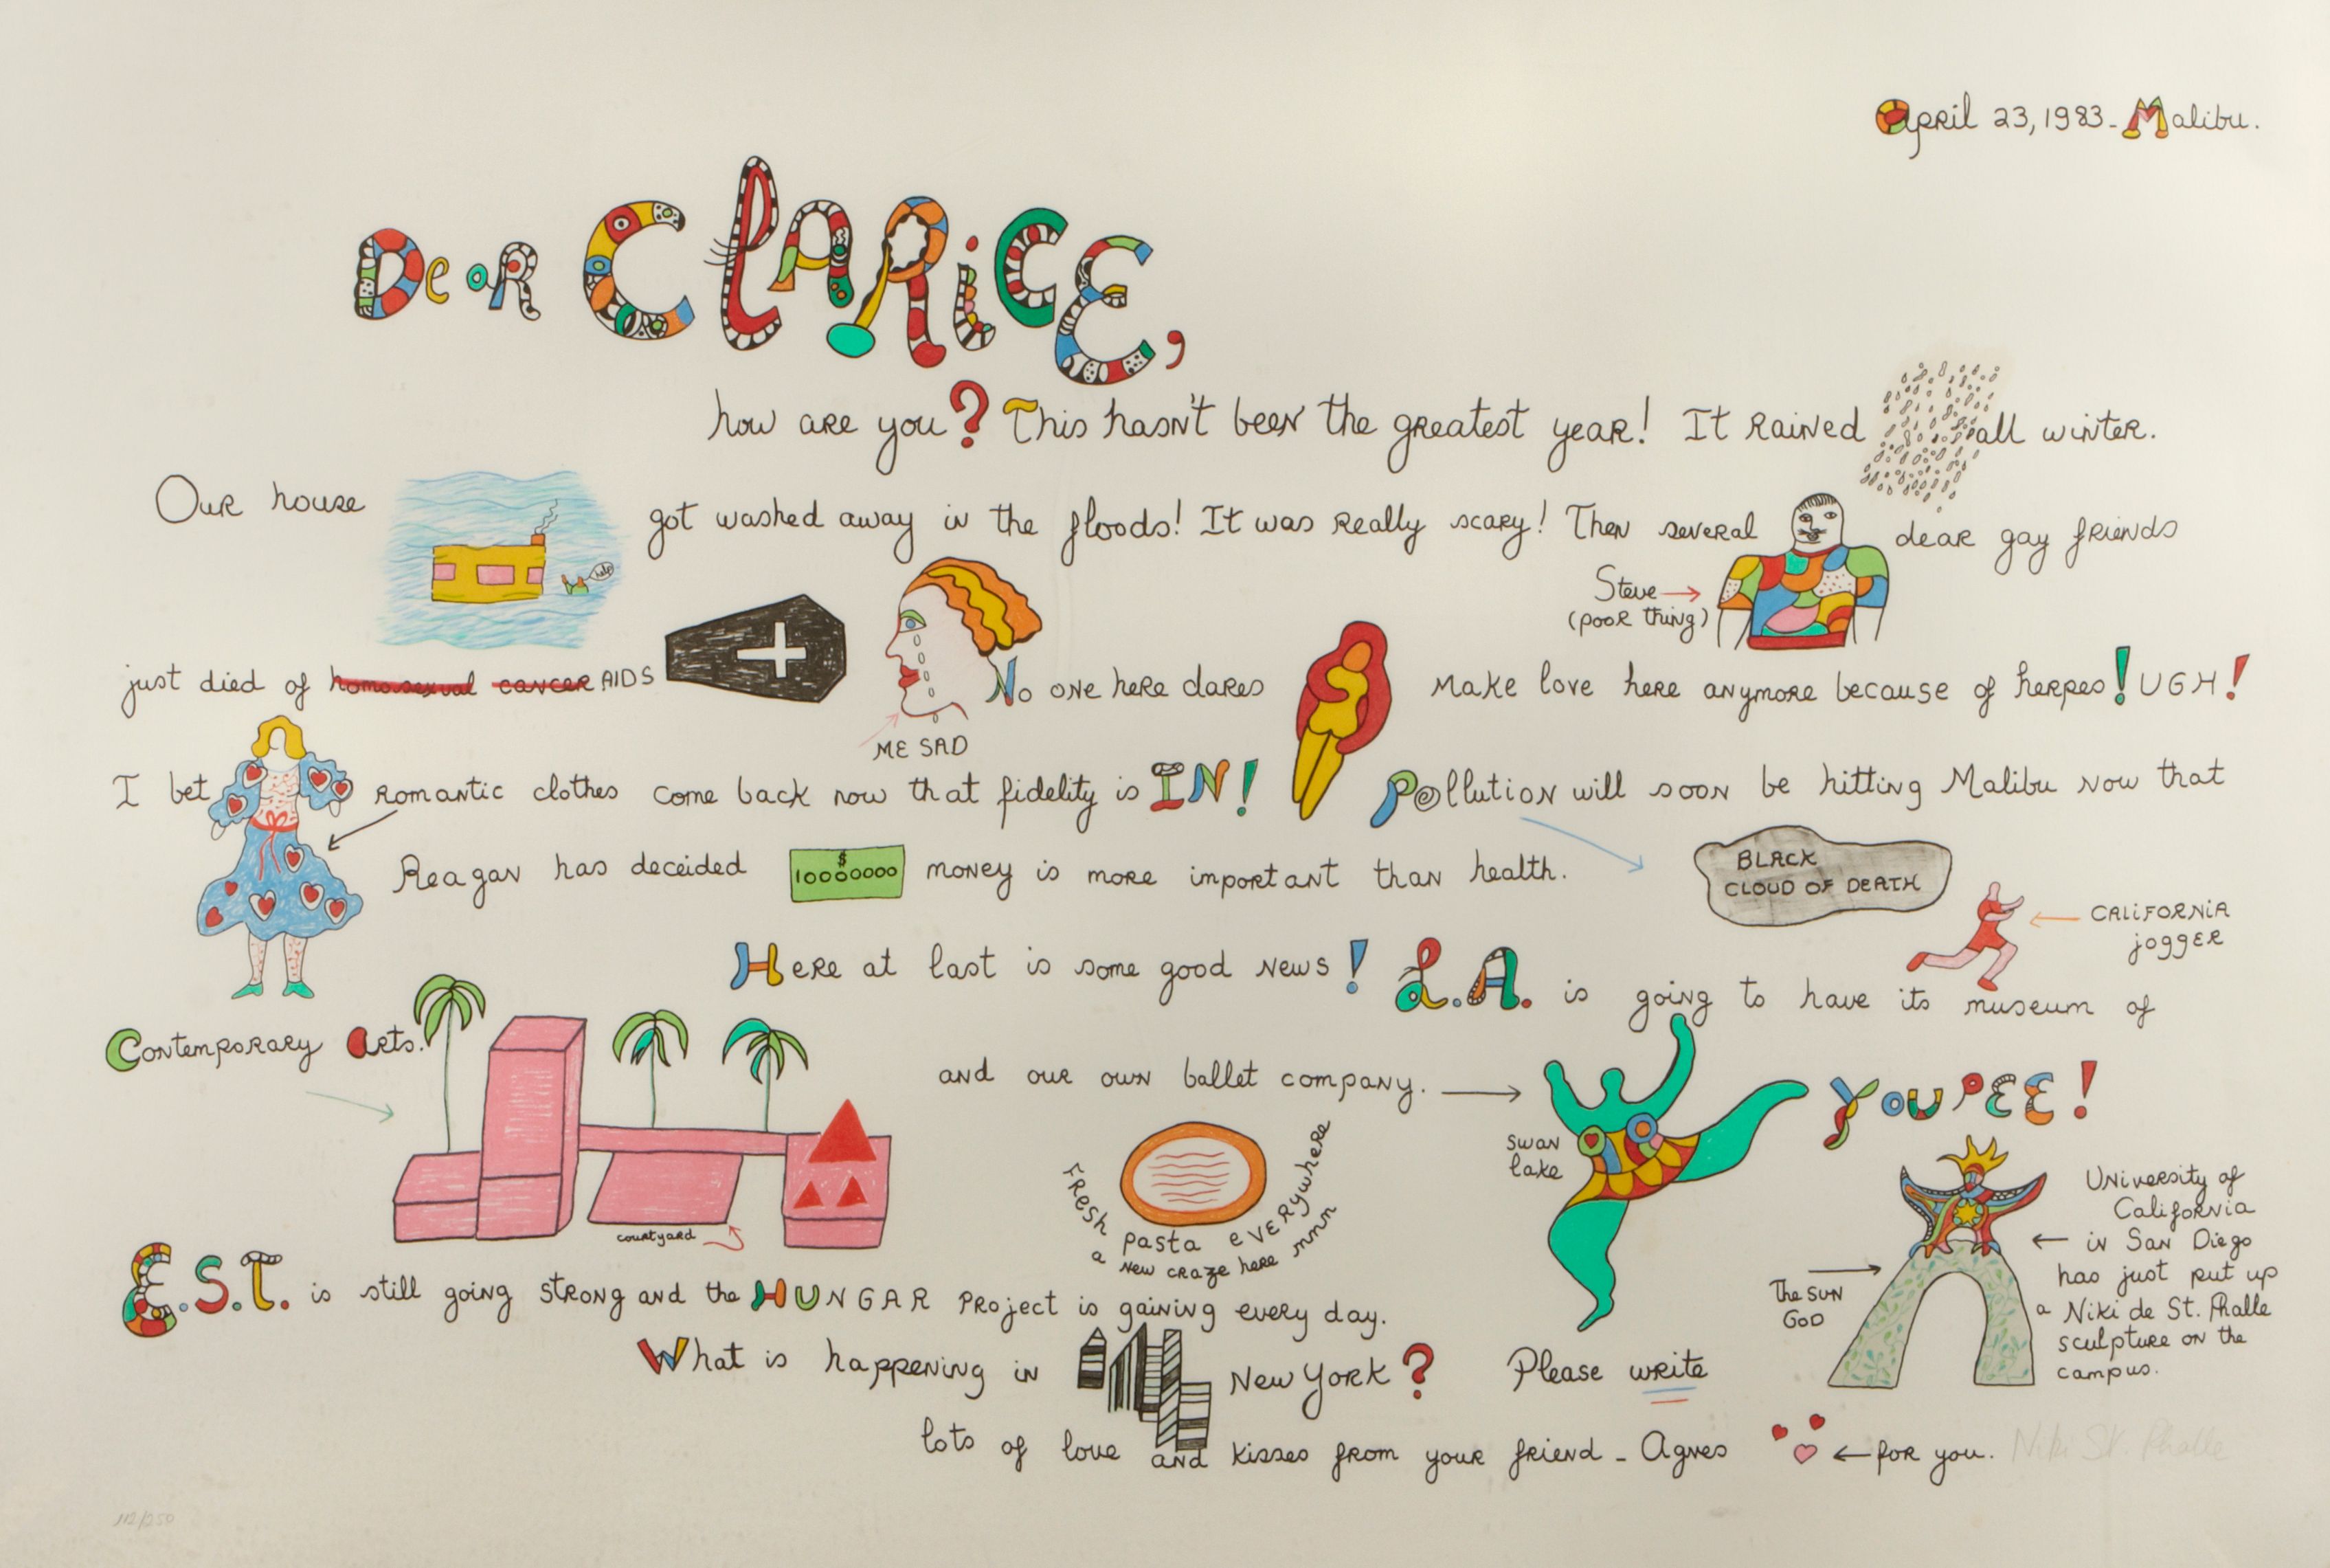 April 23, 1983 - Malibu.
Dear Clarice,
how are you? This hasn't been the greatest year! It rained all winter.
Our house got washed away in the floods! It was really scary! Then several dear gay friends
help
Steve
(poor thing)
just died of homosexual cancer AIDS No one here dares make love here anymore because of herpes! UGH!
ME SAD
I bet romantic clothes come back now that fidelity is IN! Pollution will soon be hitting Malibu now that
Reagan has deceided money is more important than health.
$
10000000
BLACK
CLOUD OF DEATH
CALIFORNIA
jogger
Here at last is some good news! L.A. is going to have its museum of
Contemporary Arts.
and our own ballet company. YOUPEE!
courtyard
Fresh pasta everywhere
a new craze here mmn
swan
lake
University of
California
in San Diego
has just put up
a Niki de St. Phalle
sculpture on the
campus.
The SUN
GOD
E.S.T. is still going strong and the HUNGAR Project is gaining every day.
What is happening in New York? Please write
lots of love and kisses from your friend - Agnes
for you.
Niki St. Phalle
112/250